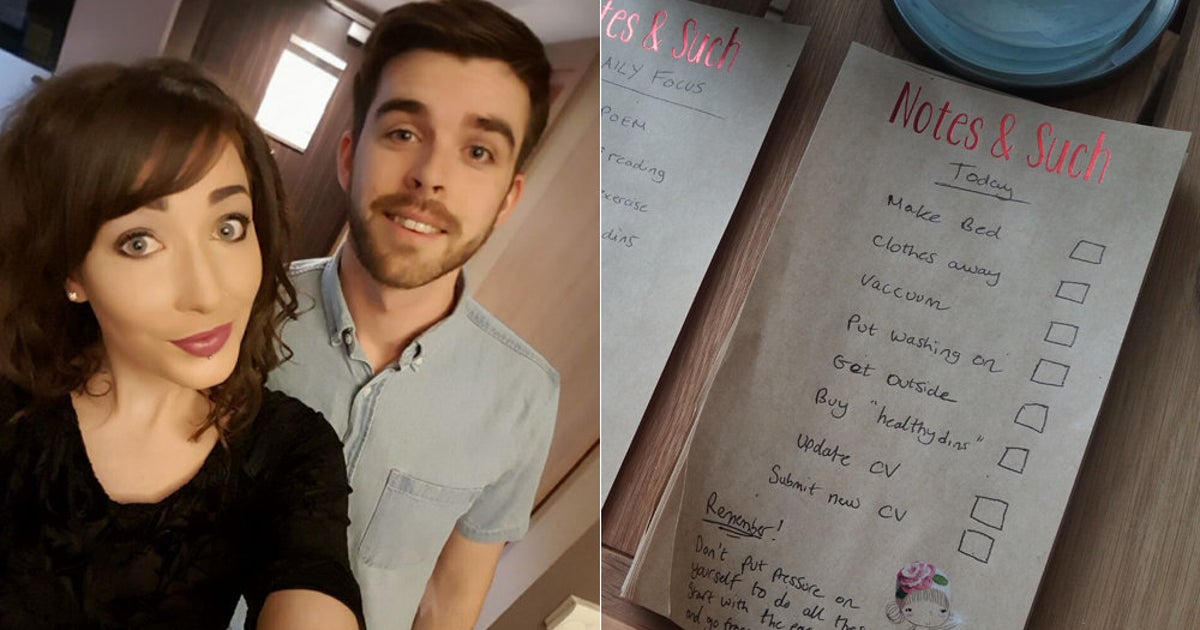 tes & Such
AILY FOCUS
POEM
reading
exercise
dins
Notes & Such
Today
Make Bed
Clothes away
Vaccuum
Put washing on
Get outside
Buy "healthy dins"
Update CV
Submit new CV
Remember!
Don't put pressure on
yourself to do all thes
Start with the
and go